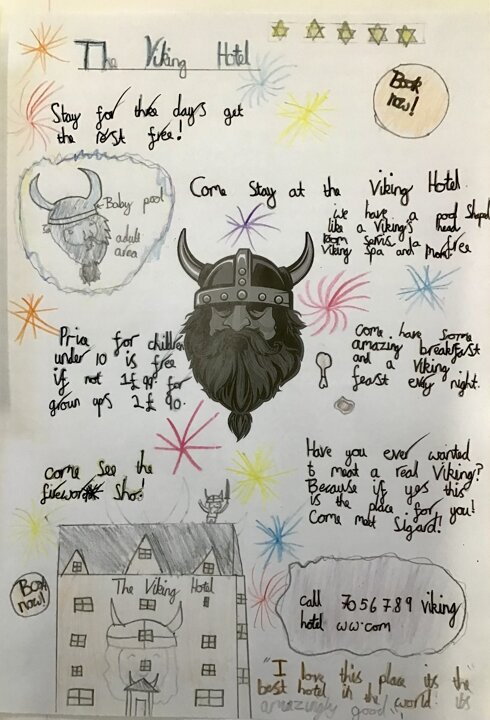 The Viking Hotel
Book
now!
Stay for three days get
the rest free!
Baby pool
adult
area
Come Stay at the Viking Hotel.
we have a pool shaped
like a Viking's head
free
Viking spa and more
Pria for children
under 10 is free
if not 1£ 99 for
grown ups 2£ 90.
Come have some
amazing breakfast
and a Viking
feast every night.
come see the
firework sho!
Have you ever wanted
to meat a real Viking?
Because if yes this
is the place for you!
Come meat Sigard!
The Viking Hotel
Book
now!
call 7056789 viking
hotel ww.com
"I love this place its the
best hotel in the world! its
amazingly good"